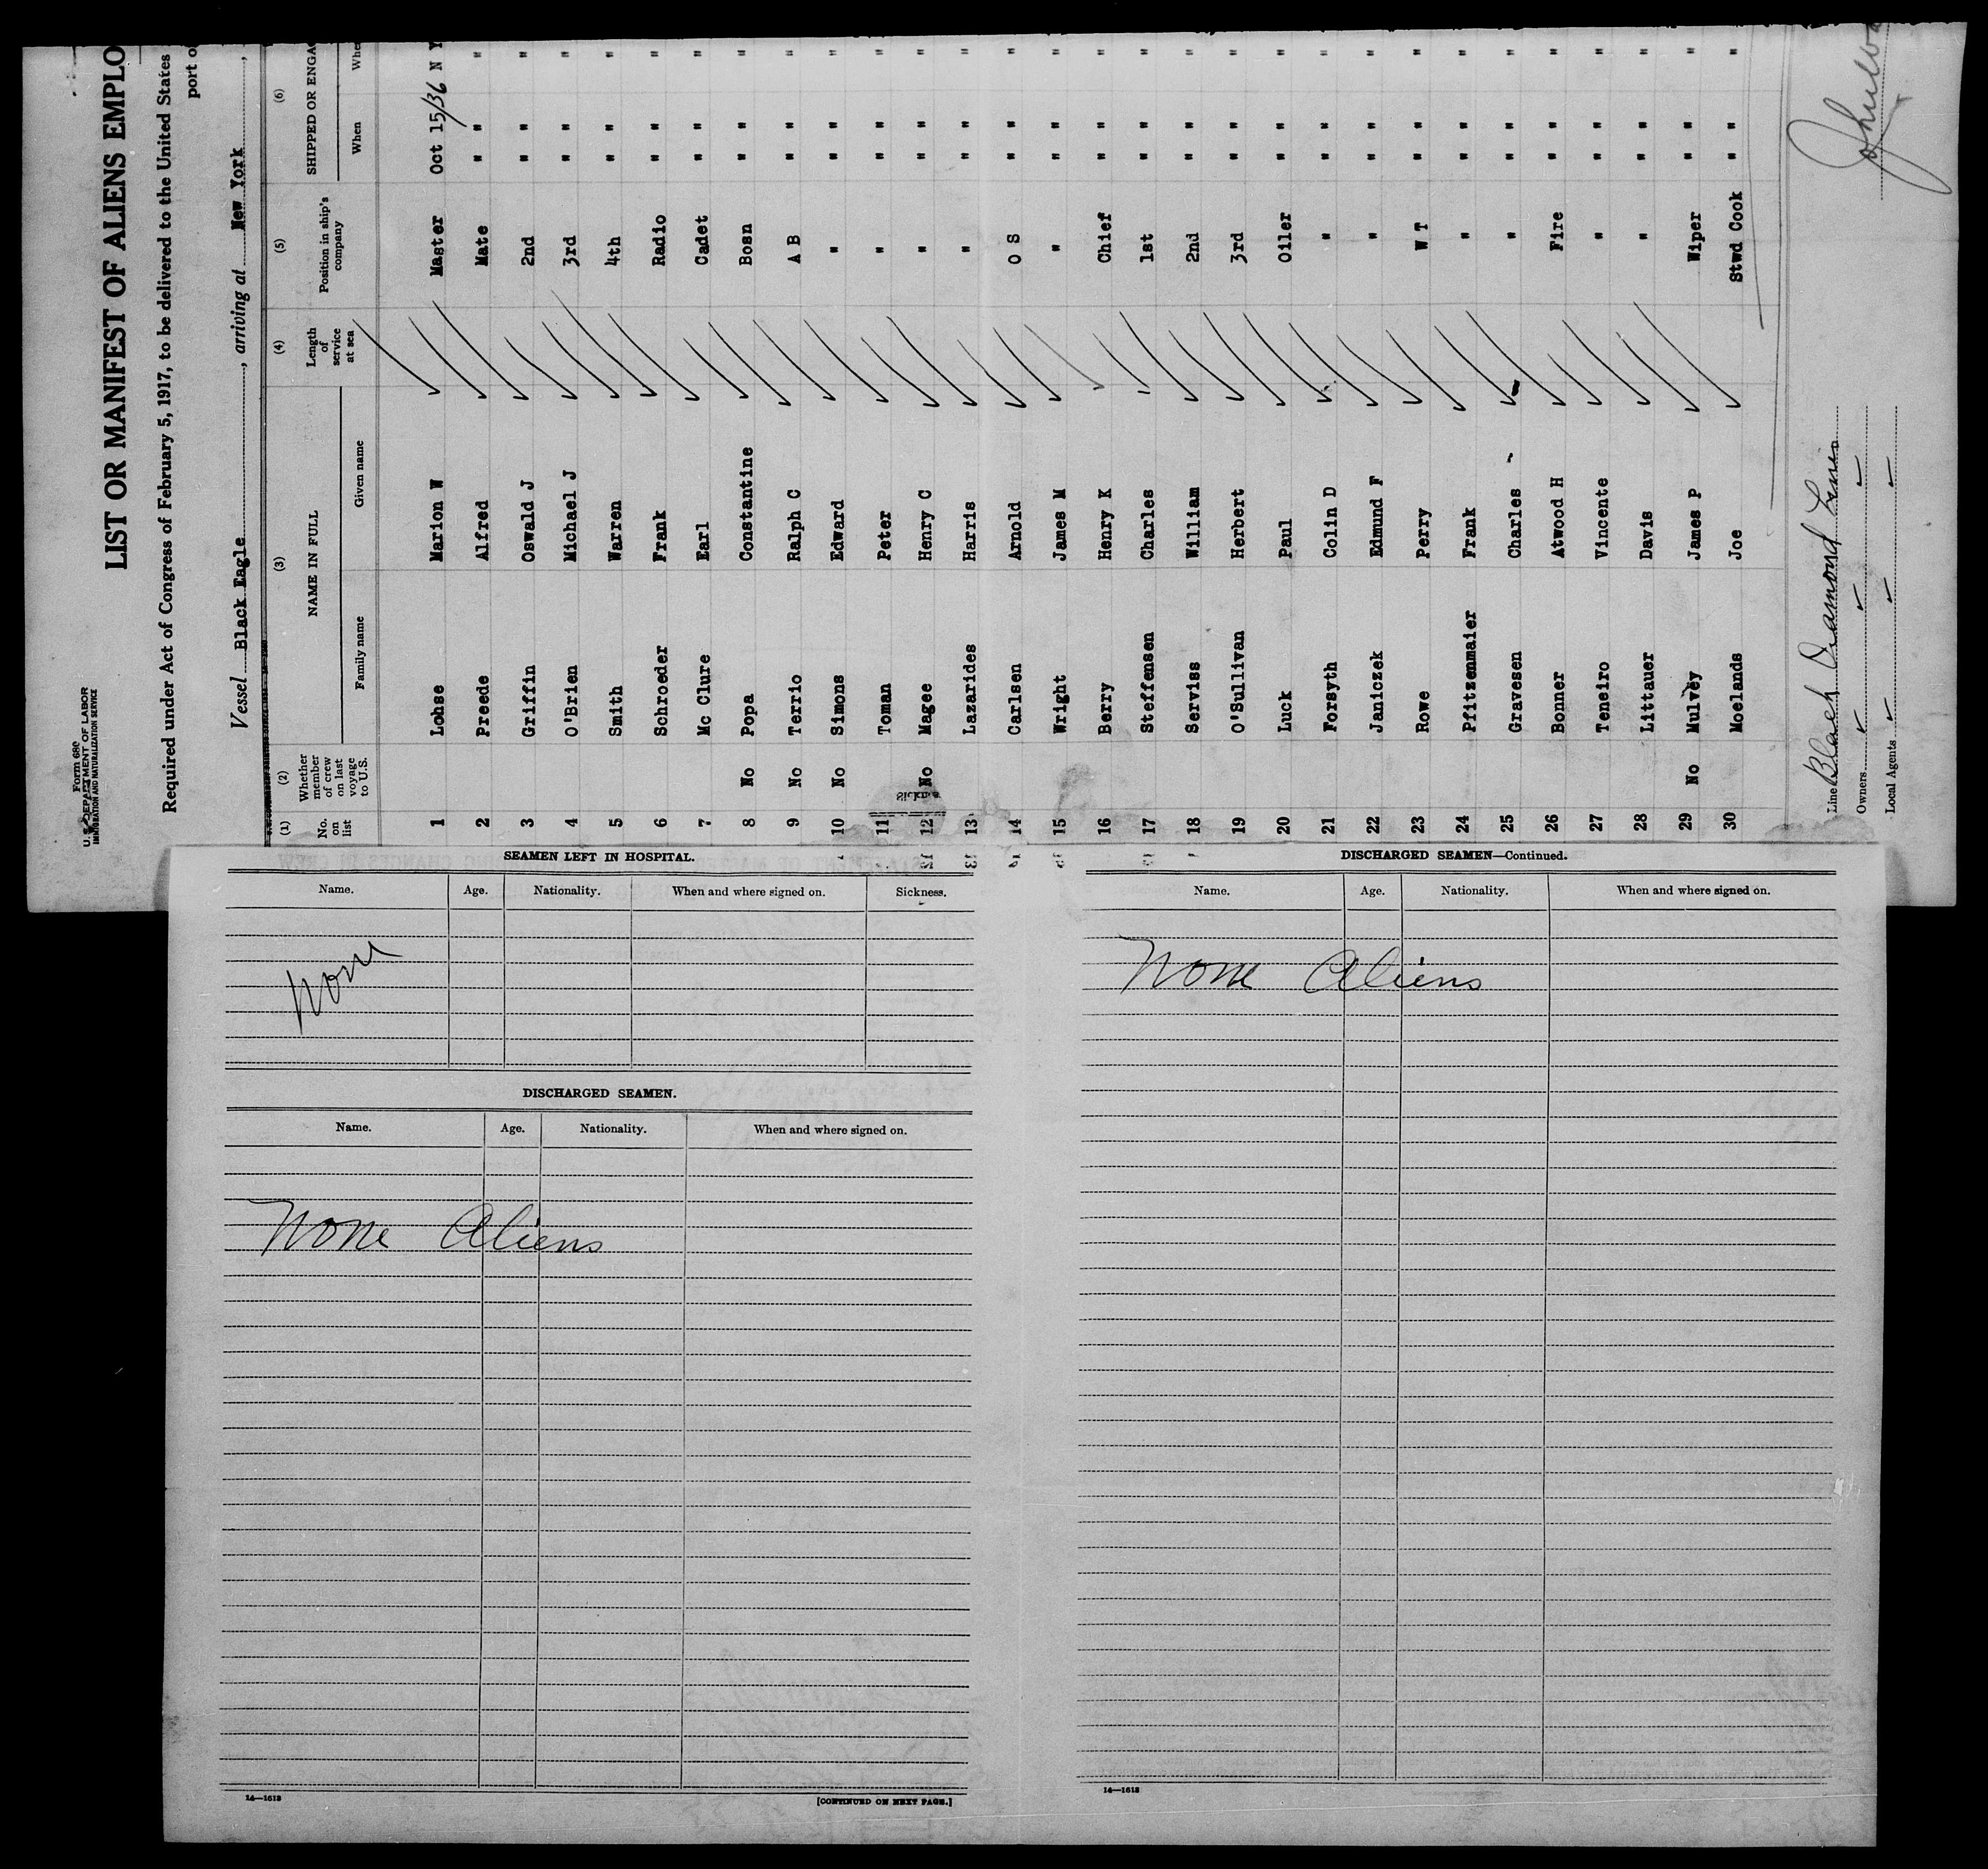 Form 680
U. S. DEPARTMENT OF LABOR
IMMIGRATION AND NATURALIZATION SERVICE
LIST OR MANIFEST OF ALIENS EMPLO
Required under Act of Congress of February 5, 1917, to be delivered to the United States
port o
Vessel Black Eagle, arriving at New York,
(1) (2) (3) (4) (5) (6)
No. on list
Whether member of crew on last voyage to U.S.
NAME IN FULL
Family name Given name
Length of service at sea
Position in ship's company
SHIPPED OR ENGAG
When Whe
1 Lohse Marion W Master Oct 15/36 N Y
2 Preede Alfred Mate " " "
3 Griffin Oswald J 2nd " " "
4 O'Brien Michael J 3rd " " "
5 Smith Warren 4th " " "
6 Schroeder Frank Radio " " "
7 Mc Clure Earl Cadet " " "
8 No Popa Constantine Bosn " " "
9 No Terrio Ralph C A B " " "
10 No Simons Edward " " " "
11 Toman Peter " " " "
12 No Magee Henry C " " " "
13 Lazarides Harris " " " "
14 Carlsen Arnold O S " " "
15 Wright James M " " " "
16 Berry Henry K Chief " " "
17 Steffensen Charles 1st " " "
18 Serviss William 2nd " " "
19 O'Sullivan Herbert 3rd " " "
20 Luck Paul Oiler " " "
21 Forsyth Colin D " " " "
22 Janiczek Edmund F " " " "
23 Rowe Perry W T " " "
24 Pfitzenmaier Frank " " " "
25 Gravesen Charles " " " "
26 Bonner Atwood H Fire " " "
27 Teneiro Vincente " " " "
28 Littauer Davis " " " "
29 No Mulvey James P Wiper " " "
30 Moelands Joe Stwd Cook " " "
Line Black Diamond Lines
Owners
Local Agents
SEAMEN LEFT IN HOSPITAL.
Name. Age. Nationality. When and where signed on. Sickness.
None
DISCHARGED SEAMEN.
Name. Age. Nationality. When and where signed on.
None Aliens
14—1613
[CONTINUED ON NEXT PAGE.]
DISCHARGED SEAMEN—Continued.
Name. Age. Nationality. When and where signed on.
None Aliens
14—1613